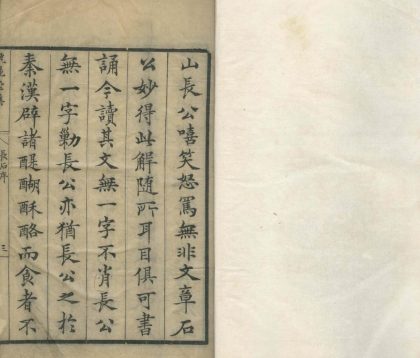 山長公嘻笑怒罵無非文章石
公妙得此解隨所耳目俱可書
誦今讀其文無一字不肖長公
無一字勦長公亦猶長公之於
秦漢辟諸醍醐酥酪而食者不
長石序
三